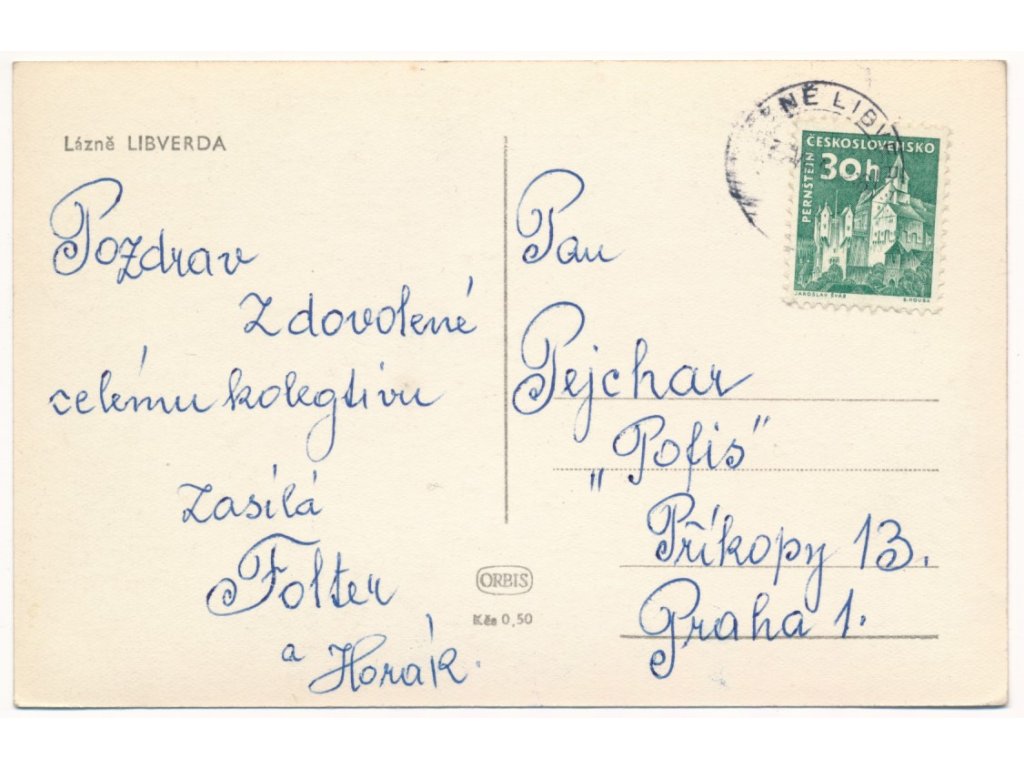 Lázně LIBVERDA
Pozdrav
Z dovolené
celému kolegtivu
Zasílá
Folter
a Horák.
ORBIS
Kčs 0,50
LÁZNĚ LIBV
ČESKOSLOVENSKO
30h
PERNŠTEJN
JAROSLAV ŠVÁB
Pan
Pejchar
„Pofis"
Příkopy 13.
Praha 1.